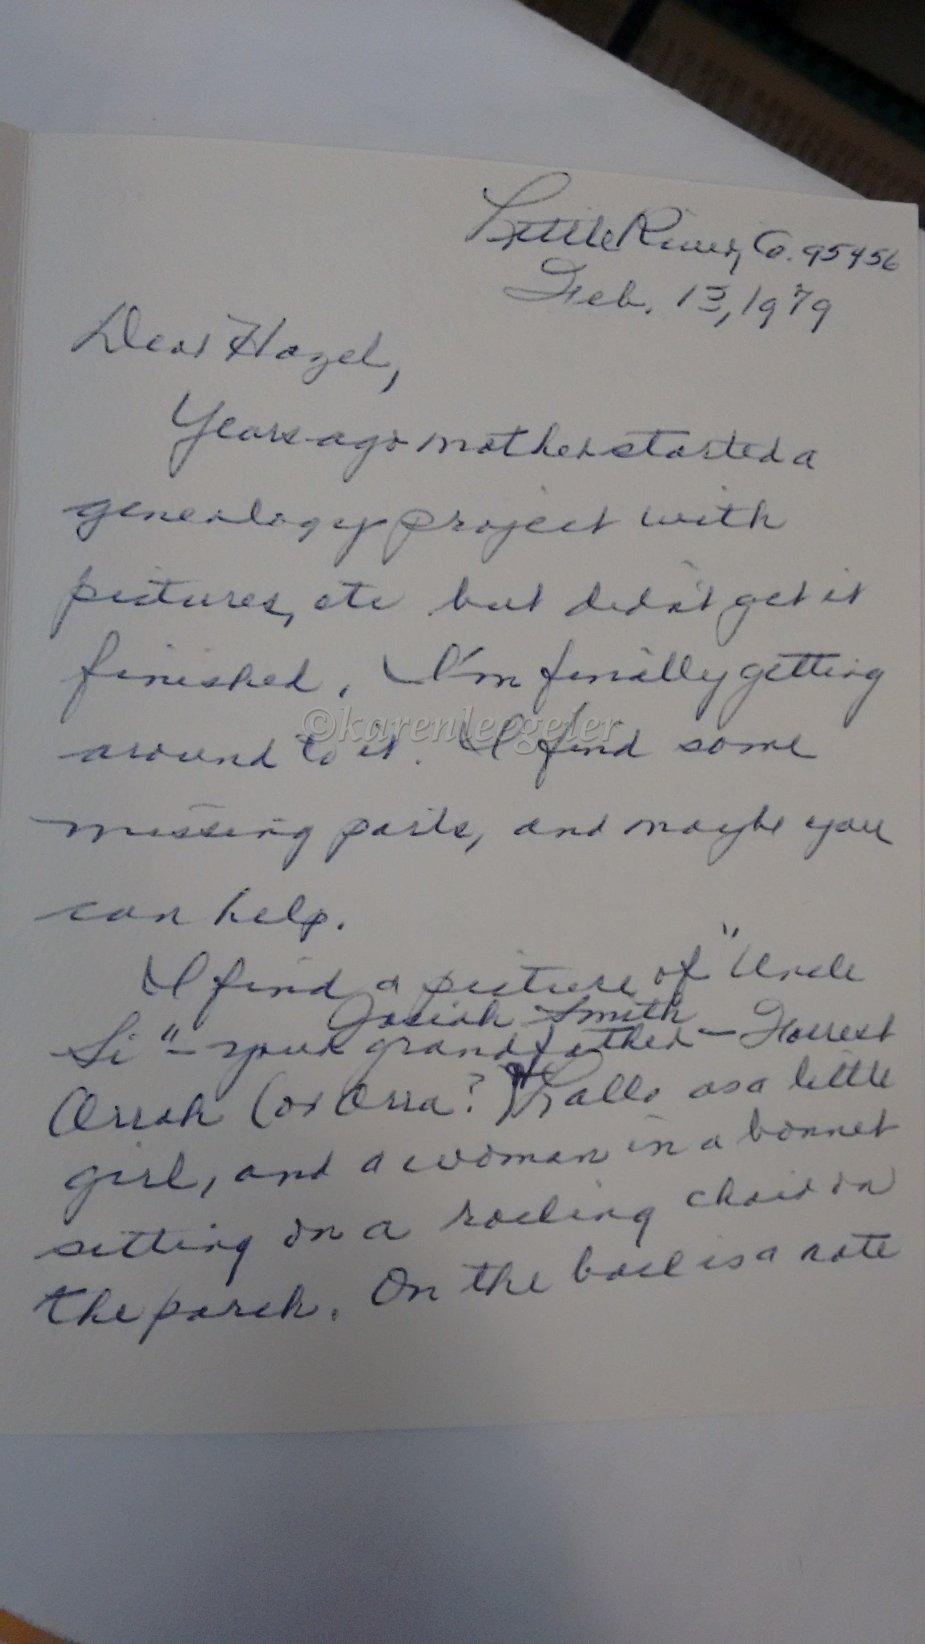 Little River, Ca. 95456
Feb. 13, 1979
Dear Hazel,
Years ago mother started a
genealogy project with
pictures, etc but didn't get it
finished. I'm finally getting
©karenleegeier
around to it. I find some
missing parts, and maybe you
can help.
I find a picture of "Uncle
Josiah Smith
Si" - your grandfather - Forrest
Orrah (or Orra?) as a little
girl, and a woman in a bonnet
sitting on a rocking chair on
the porch. On the back is a note